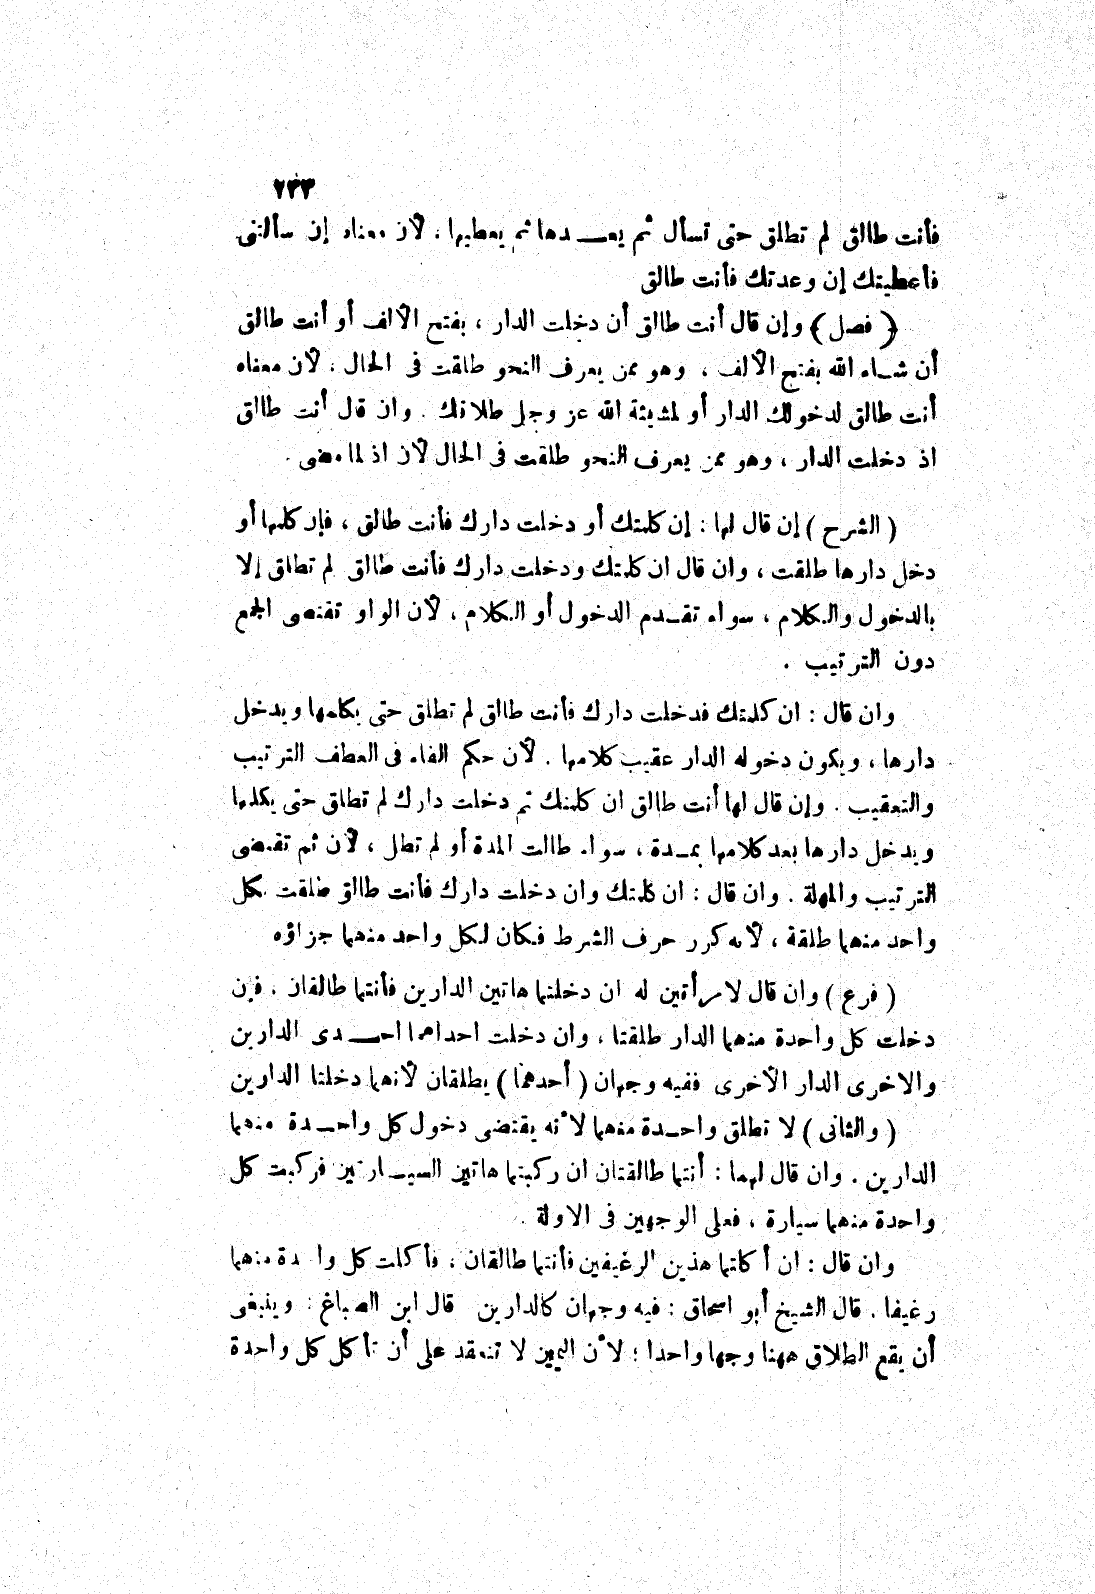 ٢٣٣
فأنت طالق لم تطلق حتى تسأل ثم يعـــدها ثم يعطيها ، لأن معناه إن سألتنى
فأعطيتك إن وعدتك فأنت طالق
( فصل ) وإن قال أنت طالق أن دخلت الدار ، بفتح الألف أو أنت طالق
أن شـاء الله بفتح الألف ، وهو ممن يعرف النحو طلقت فى الحال ، لأن معناه
أنت طالق لدخولك الدار أو لمشيئة الله عز وجل طلاقك . وان قال أنت طالق
اذ دخلت الدار ، وهو ممن يعرف النحو طلقت فى الحال لأن اذ لما مضى .
( الشرح ) إن قال لها : إن كلمتك أو دخلت دارك فأنت طالق ، فإن كلمها أو
دخل دارها طلقت ، وان قال ان كلمتك ودخلت دارك فأنت طالق لم تطلق إلا
بالدخول والكلام ، سواء تقـدم الدخول أو الكلام ، لأن الواو تقتضى الجمع
دون الترتيب .
وان قال : ان كلمتك فدخلت دارك فأنت طالق لم تطلق حتى يكلمها ويدخل
دارها ، ويكون دخوله الدار عقيب كلامها . لأن حكم الفاء فى العطف الترتيب
والتعقيب . وإن قال لها أنت طالق ان كلمتك ثم دخلت دارك لم تطلق حتى يكلمها
ويدخل دارها بعد كلامها بمـدة ، سواء طالت المدة أو لم تطل ، لأن ثم تقتضى
الترتيب والمهلة . وان قال : ان كلمتك وان دخلت دارك فأنت طالق طلقت بكل
واحد منهما طلقة ، لأنه كرر حرف الشرط فكان لكل واحد منهما جزاؤه
( فرع ) وان قال لامرأتين له ان دخلتما هاتين الدارين فأنتما طالقان . فإن
دخلت كل واحدة منهما الدار طلقتا ، وان دخلت احداهما احـــدى الدارين
والاخرى الدار الأخرى ففيه وجهان ( أحدهما ) يطلقان لأنهما دخلتا الدارين
( والثانى ) لا تطلق واحـدة منهما لأنه يقتضى دخول كل واحـدة منهما
الدارين . وان قال لهما : أنتما طالقتان ان ركبتما هاتين السيـارتين فركبت كل
واحدة منهما سيارة ، فعلى الوجهين فى الاولة .
وان قال : ان أكلتما هذين الرغيفين فأنتما طالقان ، فأكلت كل واحدة منهما
رغيفا . قال الشيخ أبو اسحاق : فيه وجهان كالدارين قال ابن الصباغ : وينبغى
أن يقع الطلاق ههنا وجها واحدا ؛ لأن اليمين لا تنعقد على أن تأكل كل واحدة